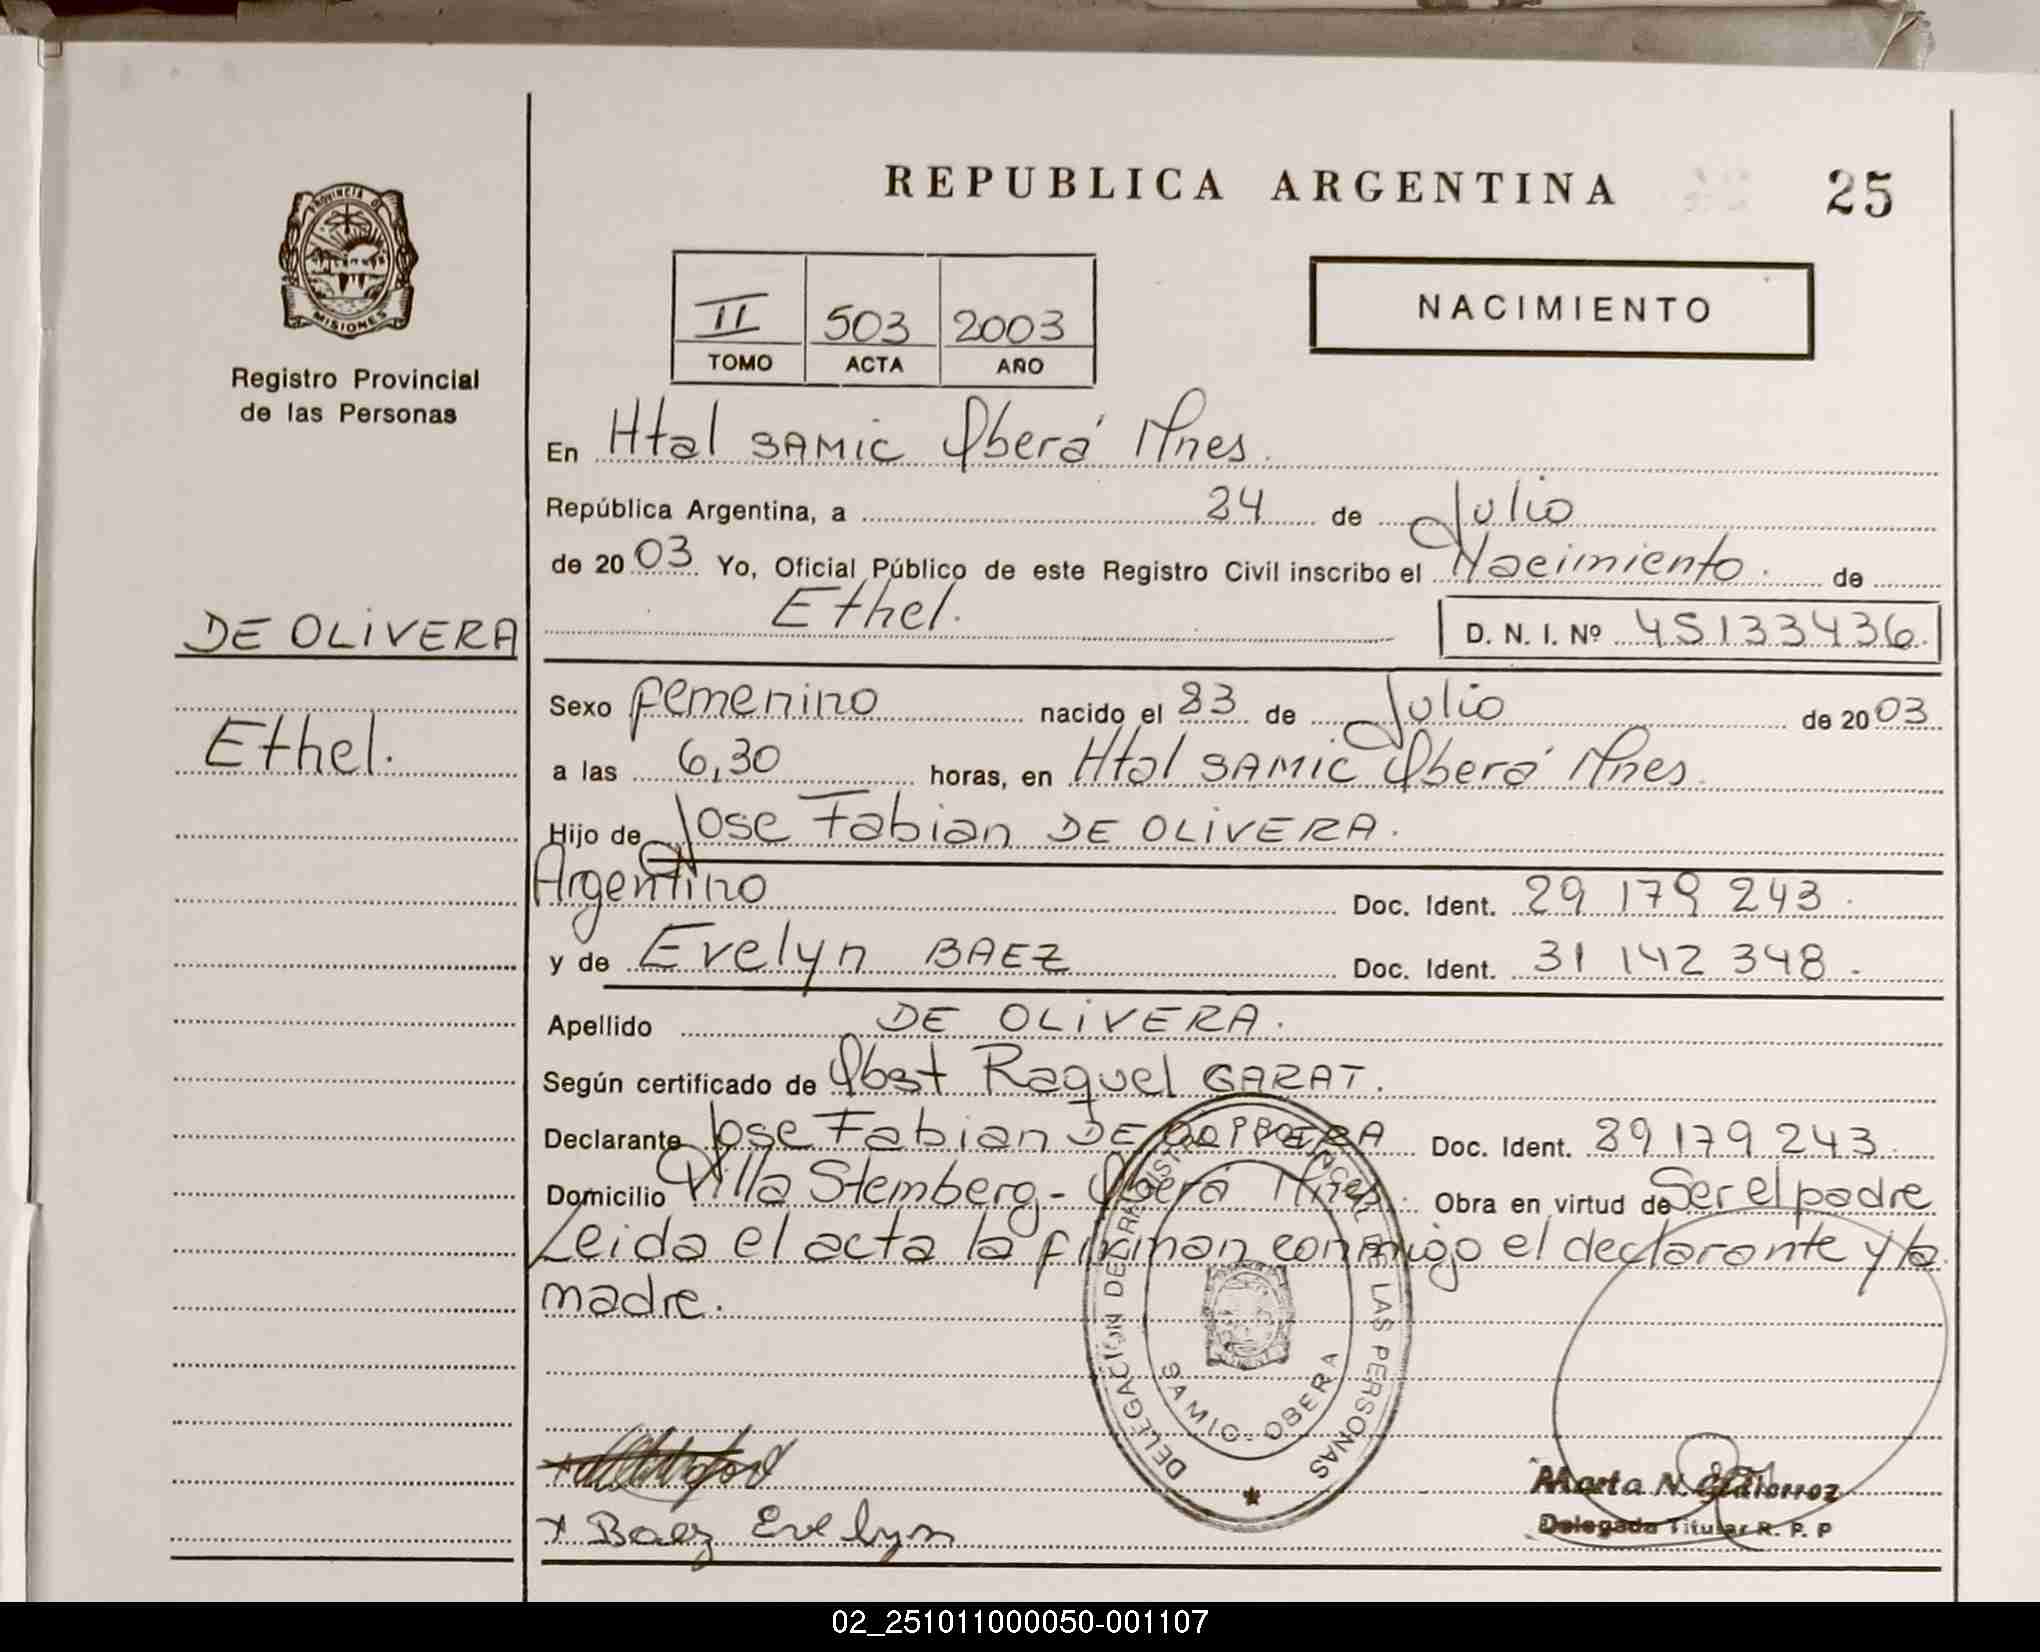 PROVINCIA DE
MISIONES
Registro Provincial
de las Personas
DE OLIVERA
Ethel.
REPUBLICA ARGENTINA 25
II 503 2003
TOMO ACTA AÑO
NACIMIENTO
En Htal SAMIC Oberá Mnes.
República Argentina, a 24 de Julio
de 2003 Yo, Oficial Público de este Registro Civil inscribo el Nacimiento. de
Ethel. D. N. I. Nº 45133436.
Sexo femenino nacido el 23 de Julio de 2003
a las 6,30 horas, en Htal SAMIC Oberá Mnes.
Hijo de Jose Fabian DE OLIVERA.
Argentino Doc. Ident. 29 179 243.
y de Evelyn BAEZ Doc. Ident. 31 142 348.
Apellido DE OLIVERA.
Según certificado de Obst Raquel GARAT.
Declarante Jose Fabian DE Doc. Ident. 29 179 243.
Domicilio Villa Stemberg - Oberá Mnes. Obra en virtud de Ser el padre
Leida el acta la firman conmigo el declarante y la
madre.
DELEGACIÓN DE REGISTRO PROVINCIAL DE LAS PERSONAS
SAMIC - OBERA
Marta N. Gutierrez
Delegada Titular R. P. P
x Baez Evelyn
02_251011000050-001107